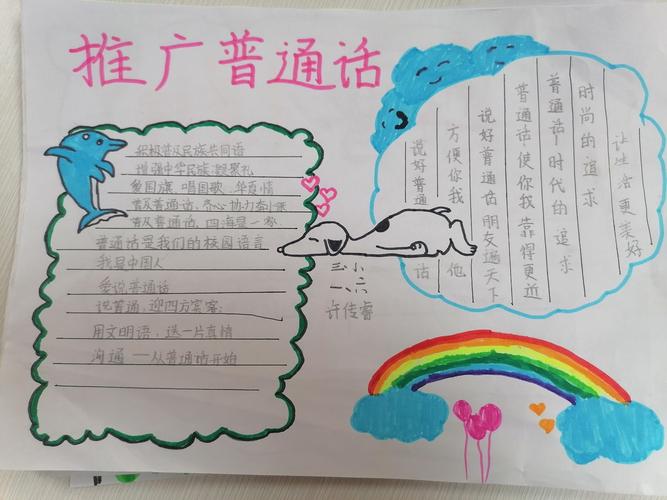 推广普通话
积极普及民族共同语
增强中华民族凝聚礼
爱国旗、唱国歌、真情
普及普通话、齐心协力奋
普及普通话、四海是一家
普通话是我们的校园语言
我是中国人
爱说普通话
说普通,迎四方宾客;
用文明语,送一片真情
沟通——从普通话开始
三小
一、六
许传睿
让生活更美好
时尚的追求
普通话,时代的追求
普通话,使你我靠得更近
说好普通话 朋友遍天下
方便你我他
说好普通话